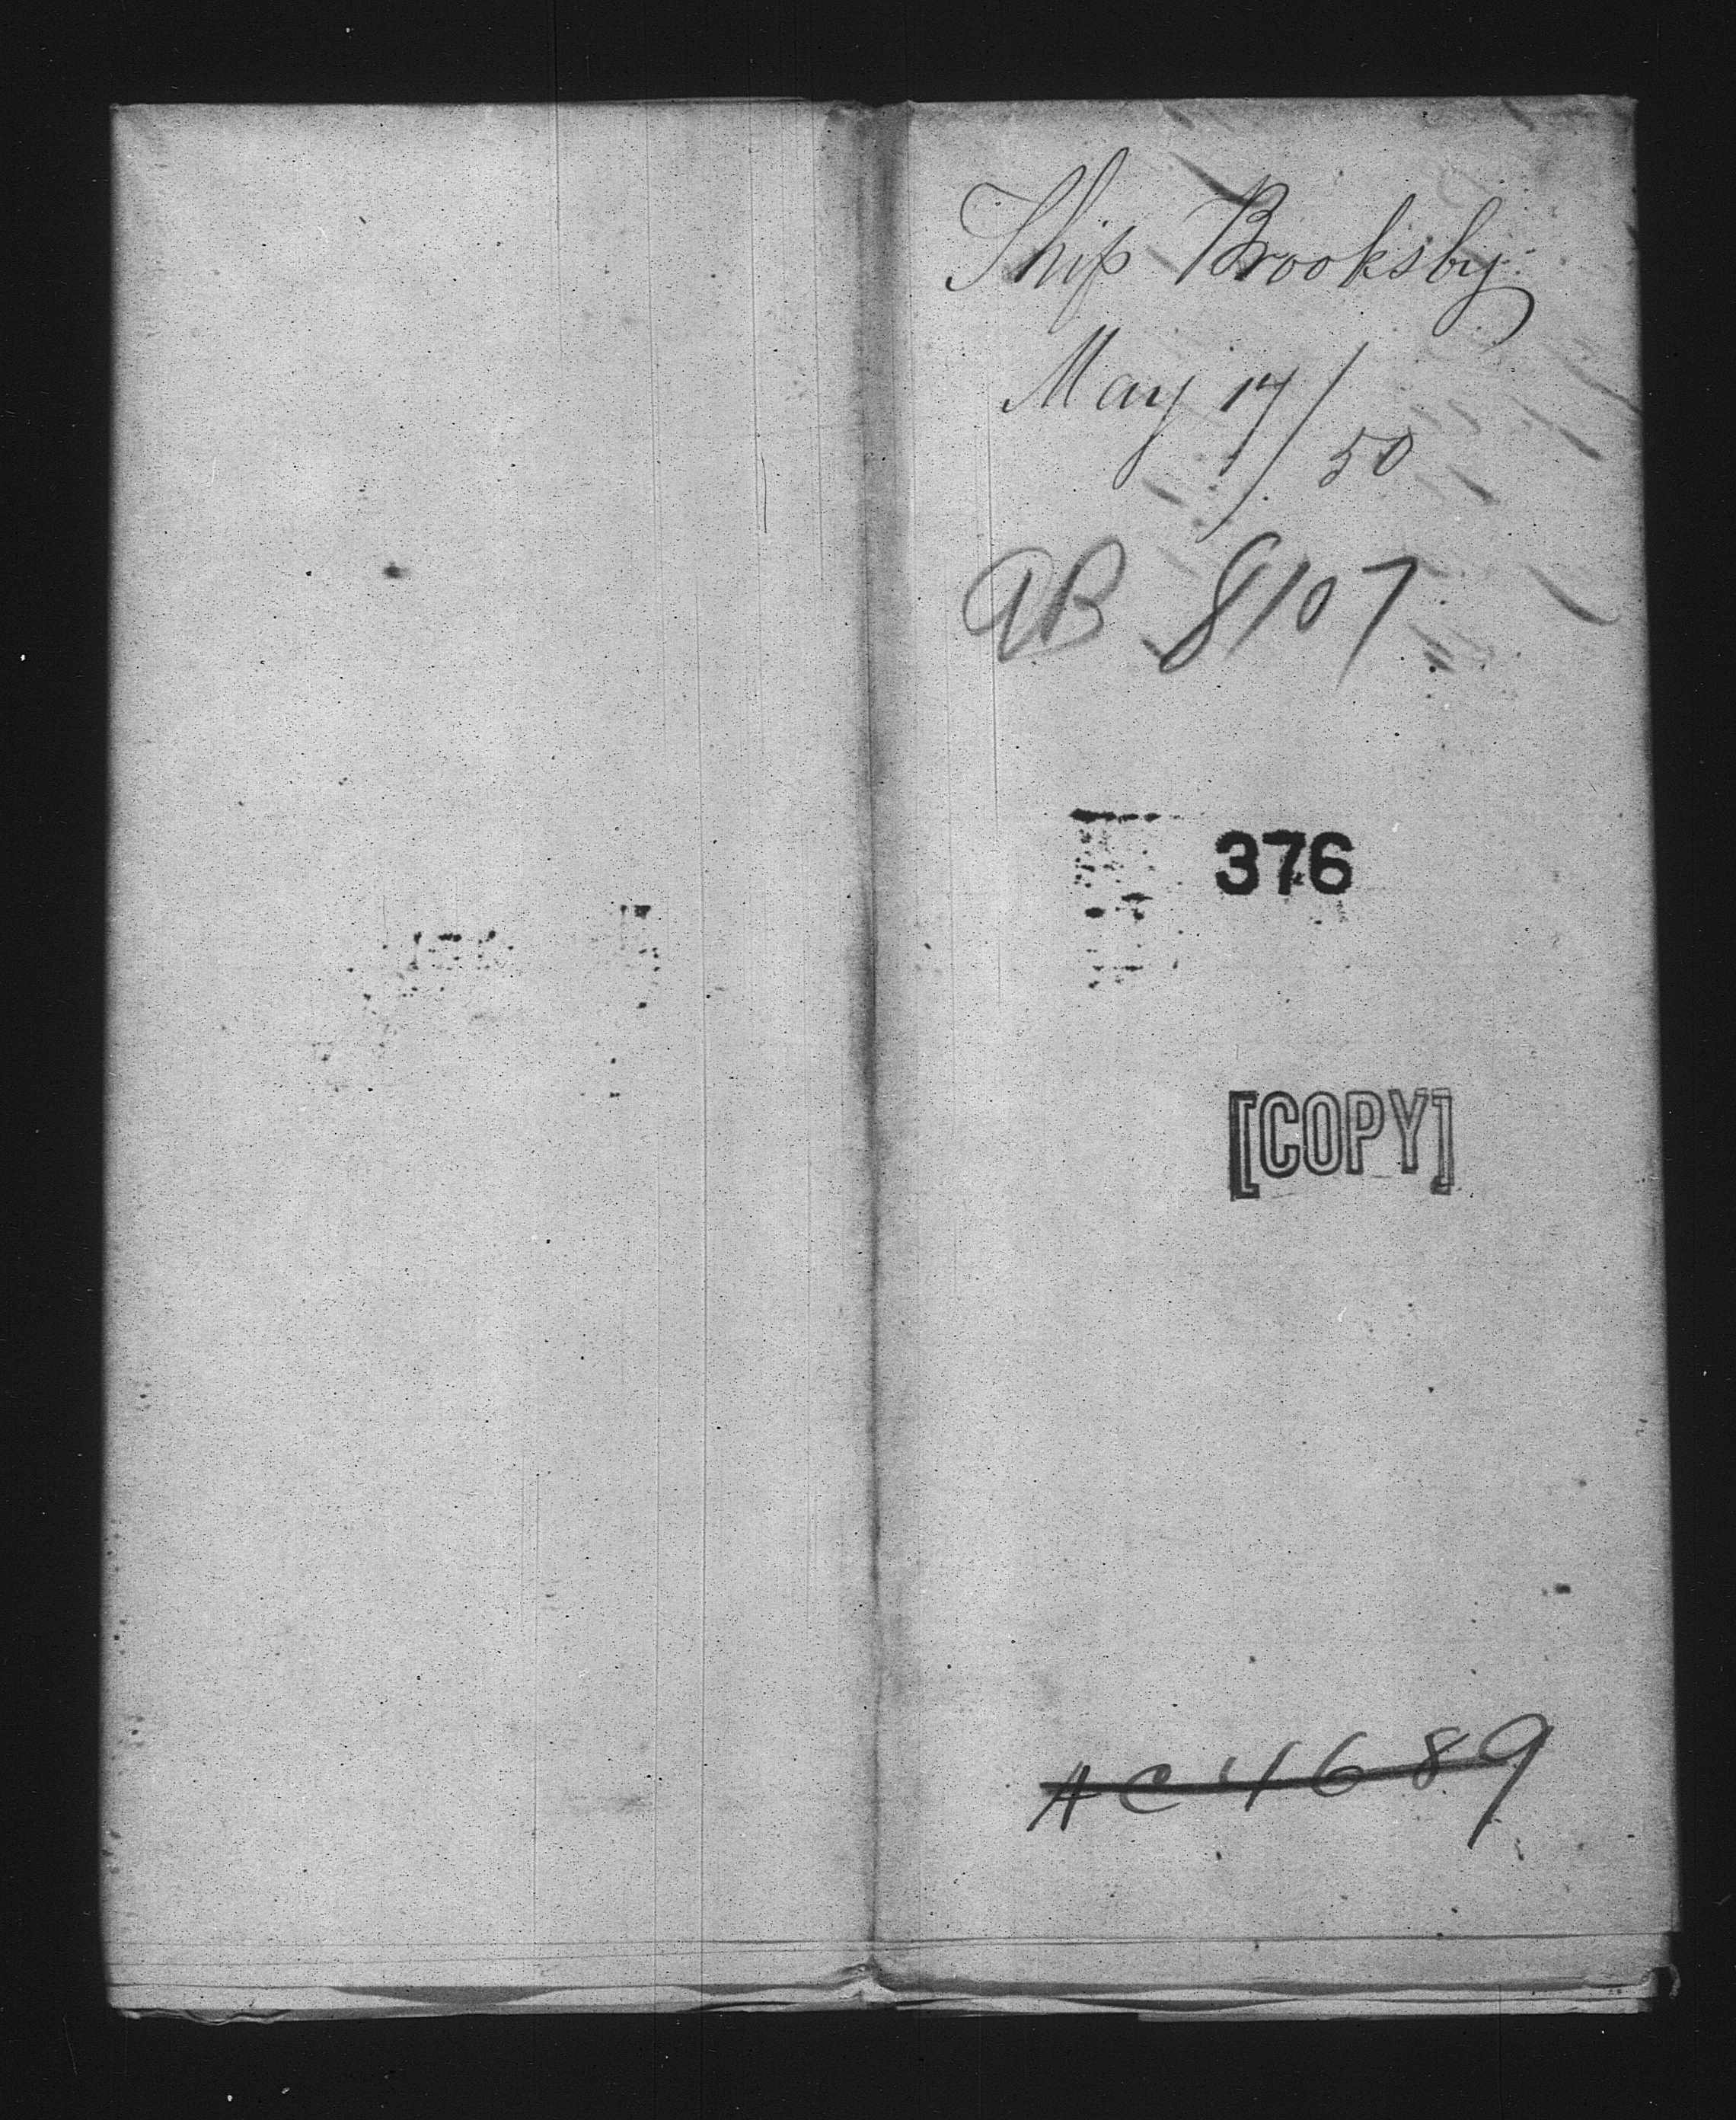 Ship Brooksby
May 17/50
AB 8107
376
[COPY]
AC4689